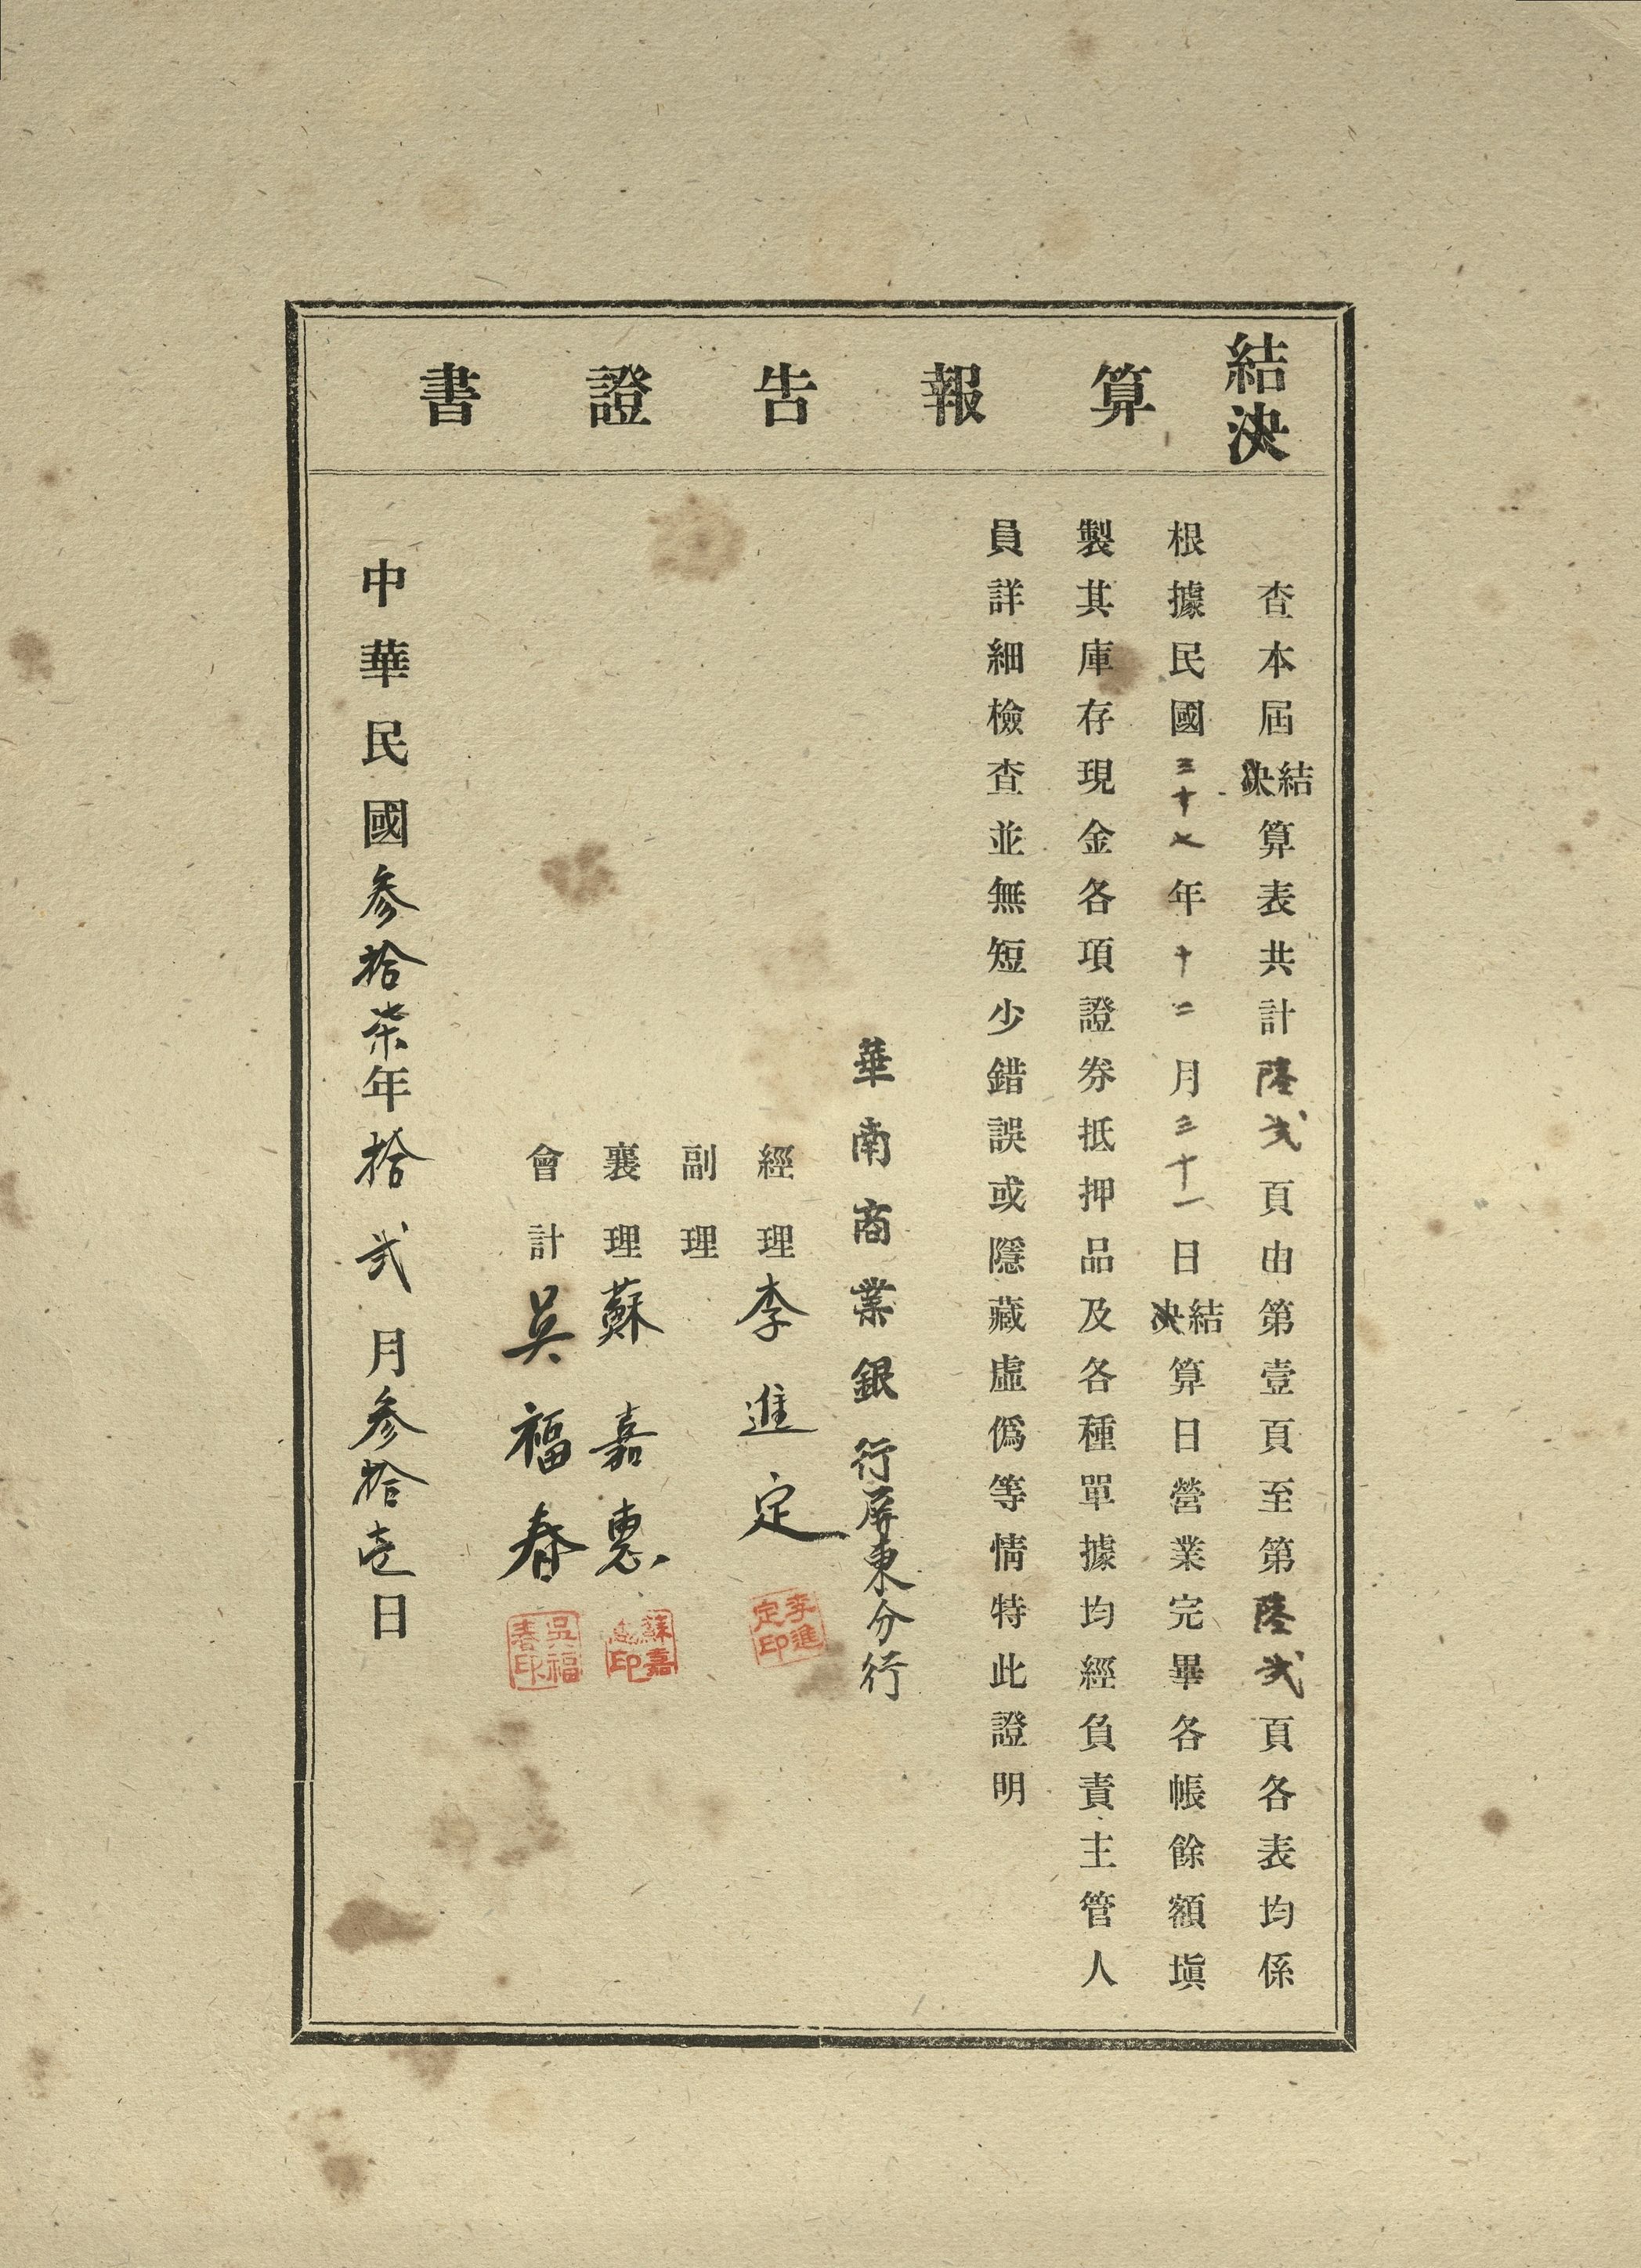 結決算報告證書
查本屆結決算表共計陸弍頁由第壹頁至第陸弍頁各表均係
根據民國三十七年十二月三十一日結決算日營業完畢各帳餘額塡
製其庫存現金各項證券抵押品及各種單據均經負責主管人
員詳細檢查並無短少錯誤或隱藏虛僞等情特此證明
華南商業銀行屏東分行
經理李進定
李進定印
副理
襄理蘇嘉惠
蘇嘉惠印
會計吳福春
吳福春印
中華民國参拾柒年拾弍月参拾壱日